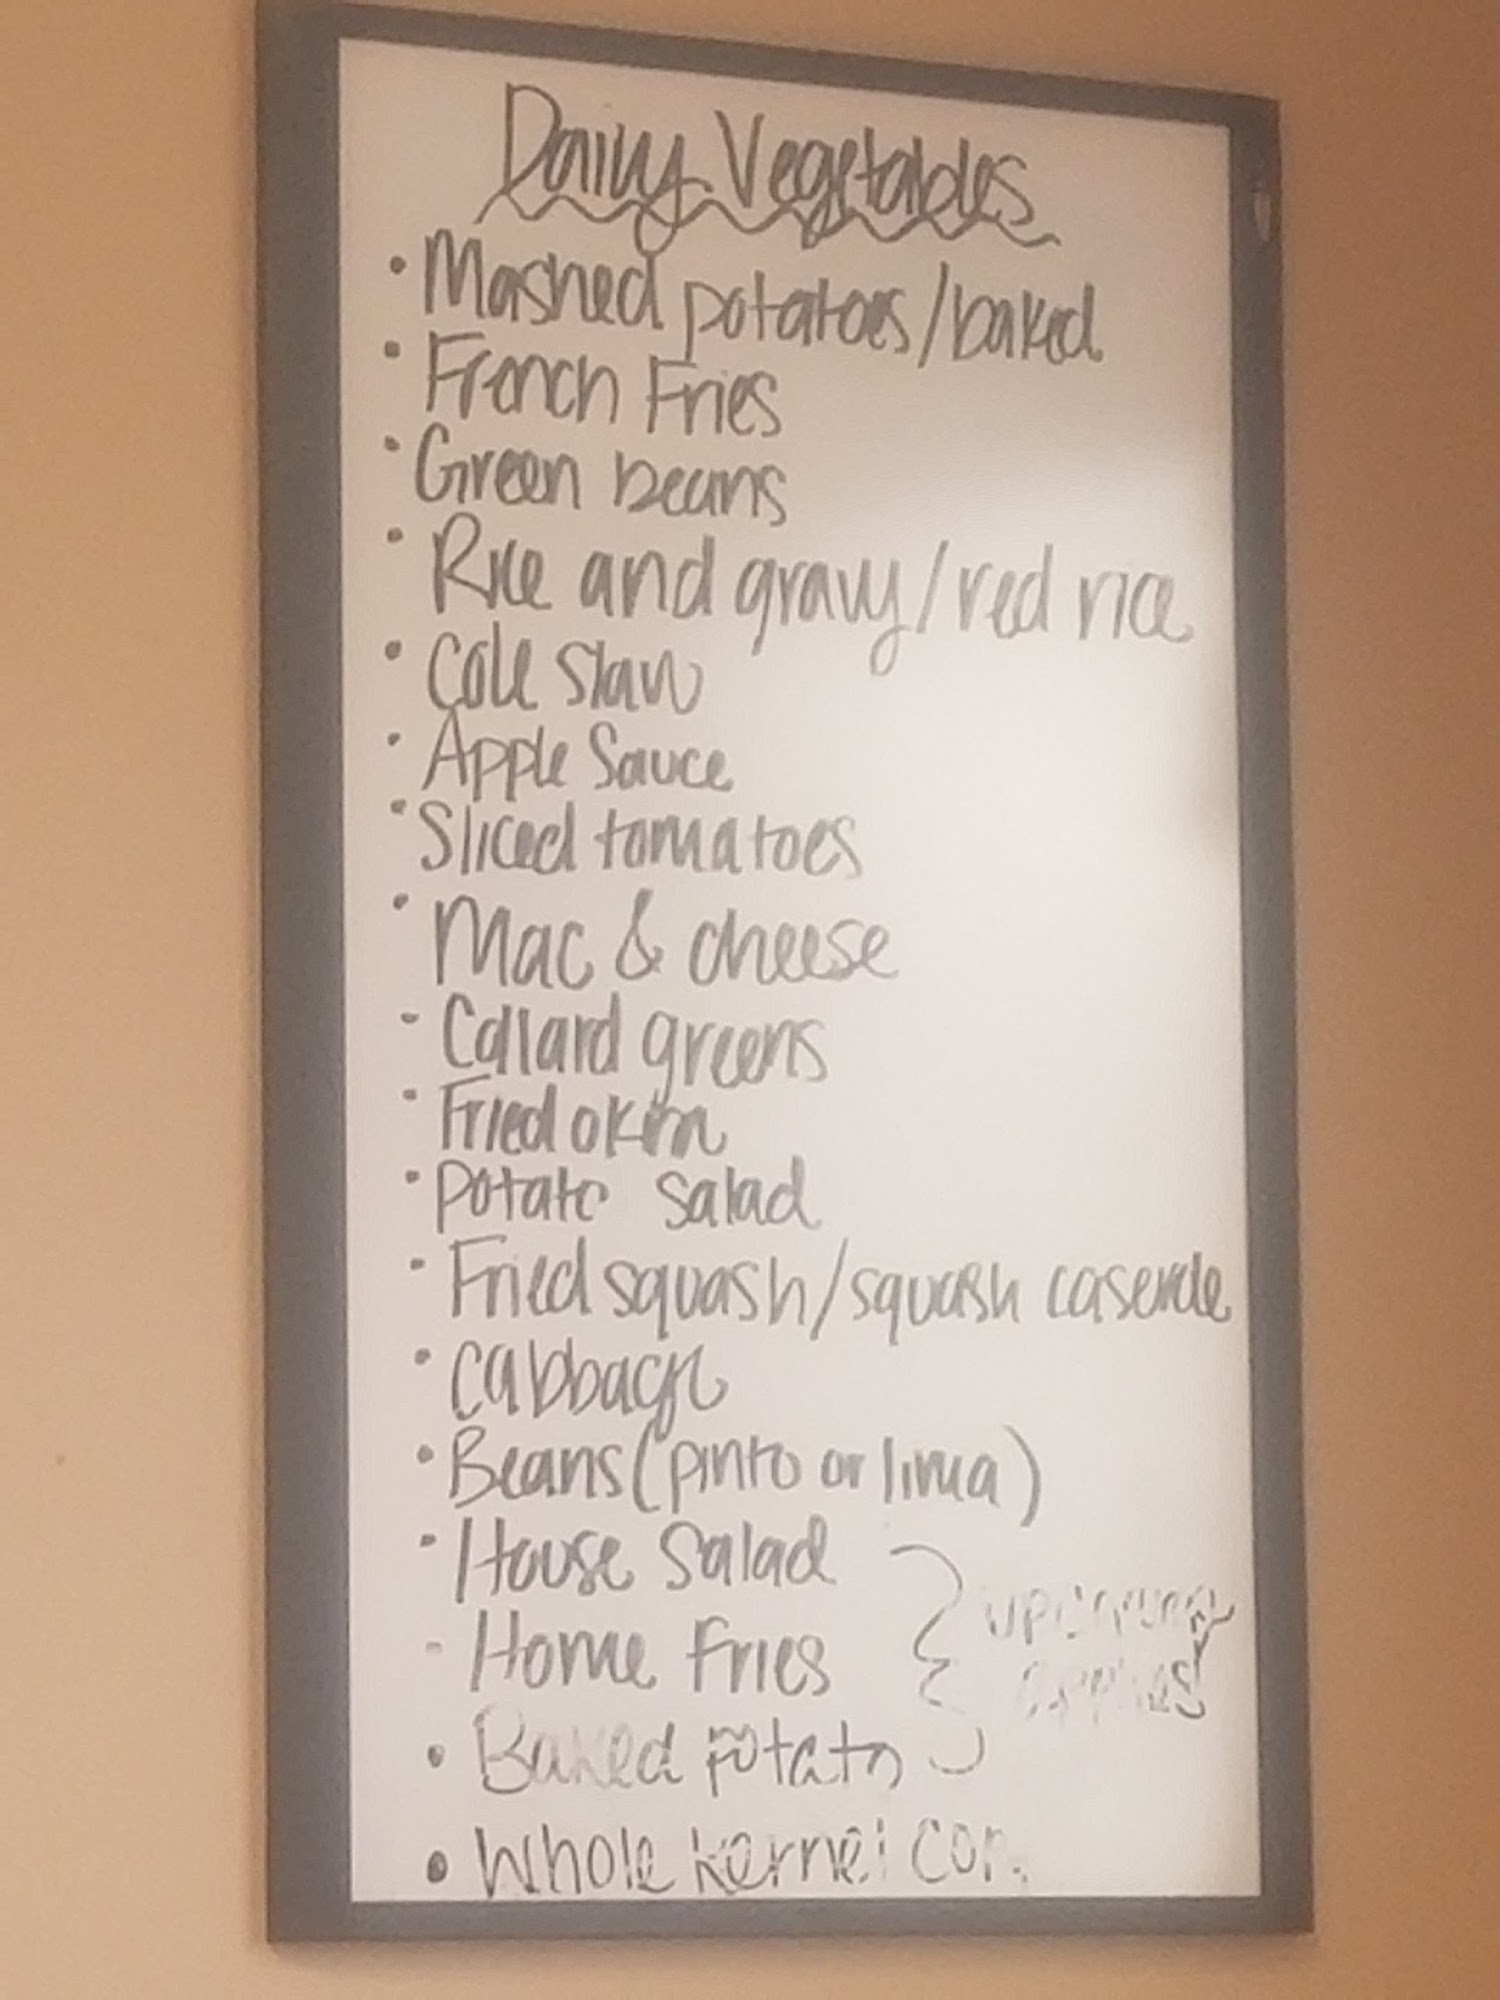 Daily Vegetables
• Mashed potatoes/baked
• French Fries
• Green beans
• Rice and gravy/red rice
• Cole slaw
• Apple Sauce
• Sliced tomatoes
• Mac & cheese
- Collard greens
• Fried okra
• Potato salad
• Fried squash/squash casserole
• Cabbage
• Beans (pinto or lima)
• House Salad
- Home Fries
upcharge
applies
• Baked potato
• Whole kernel corn